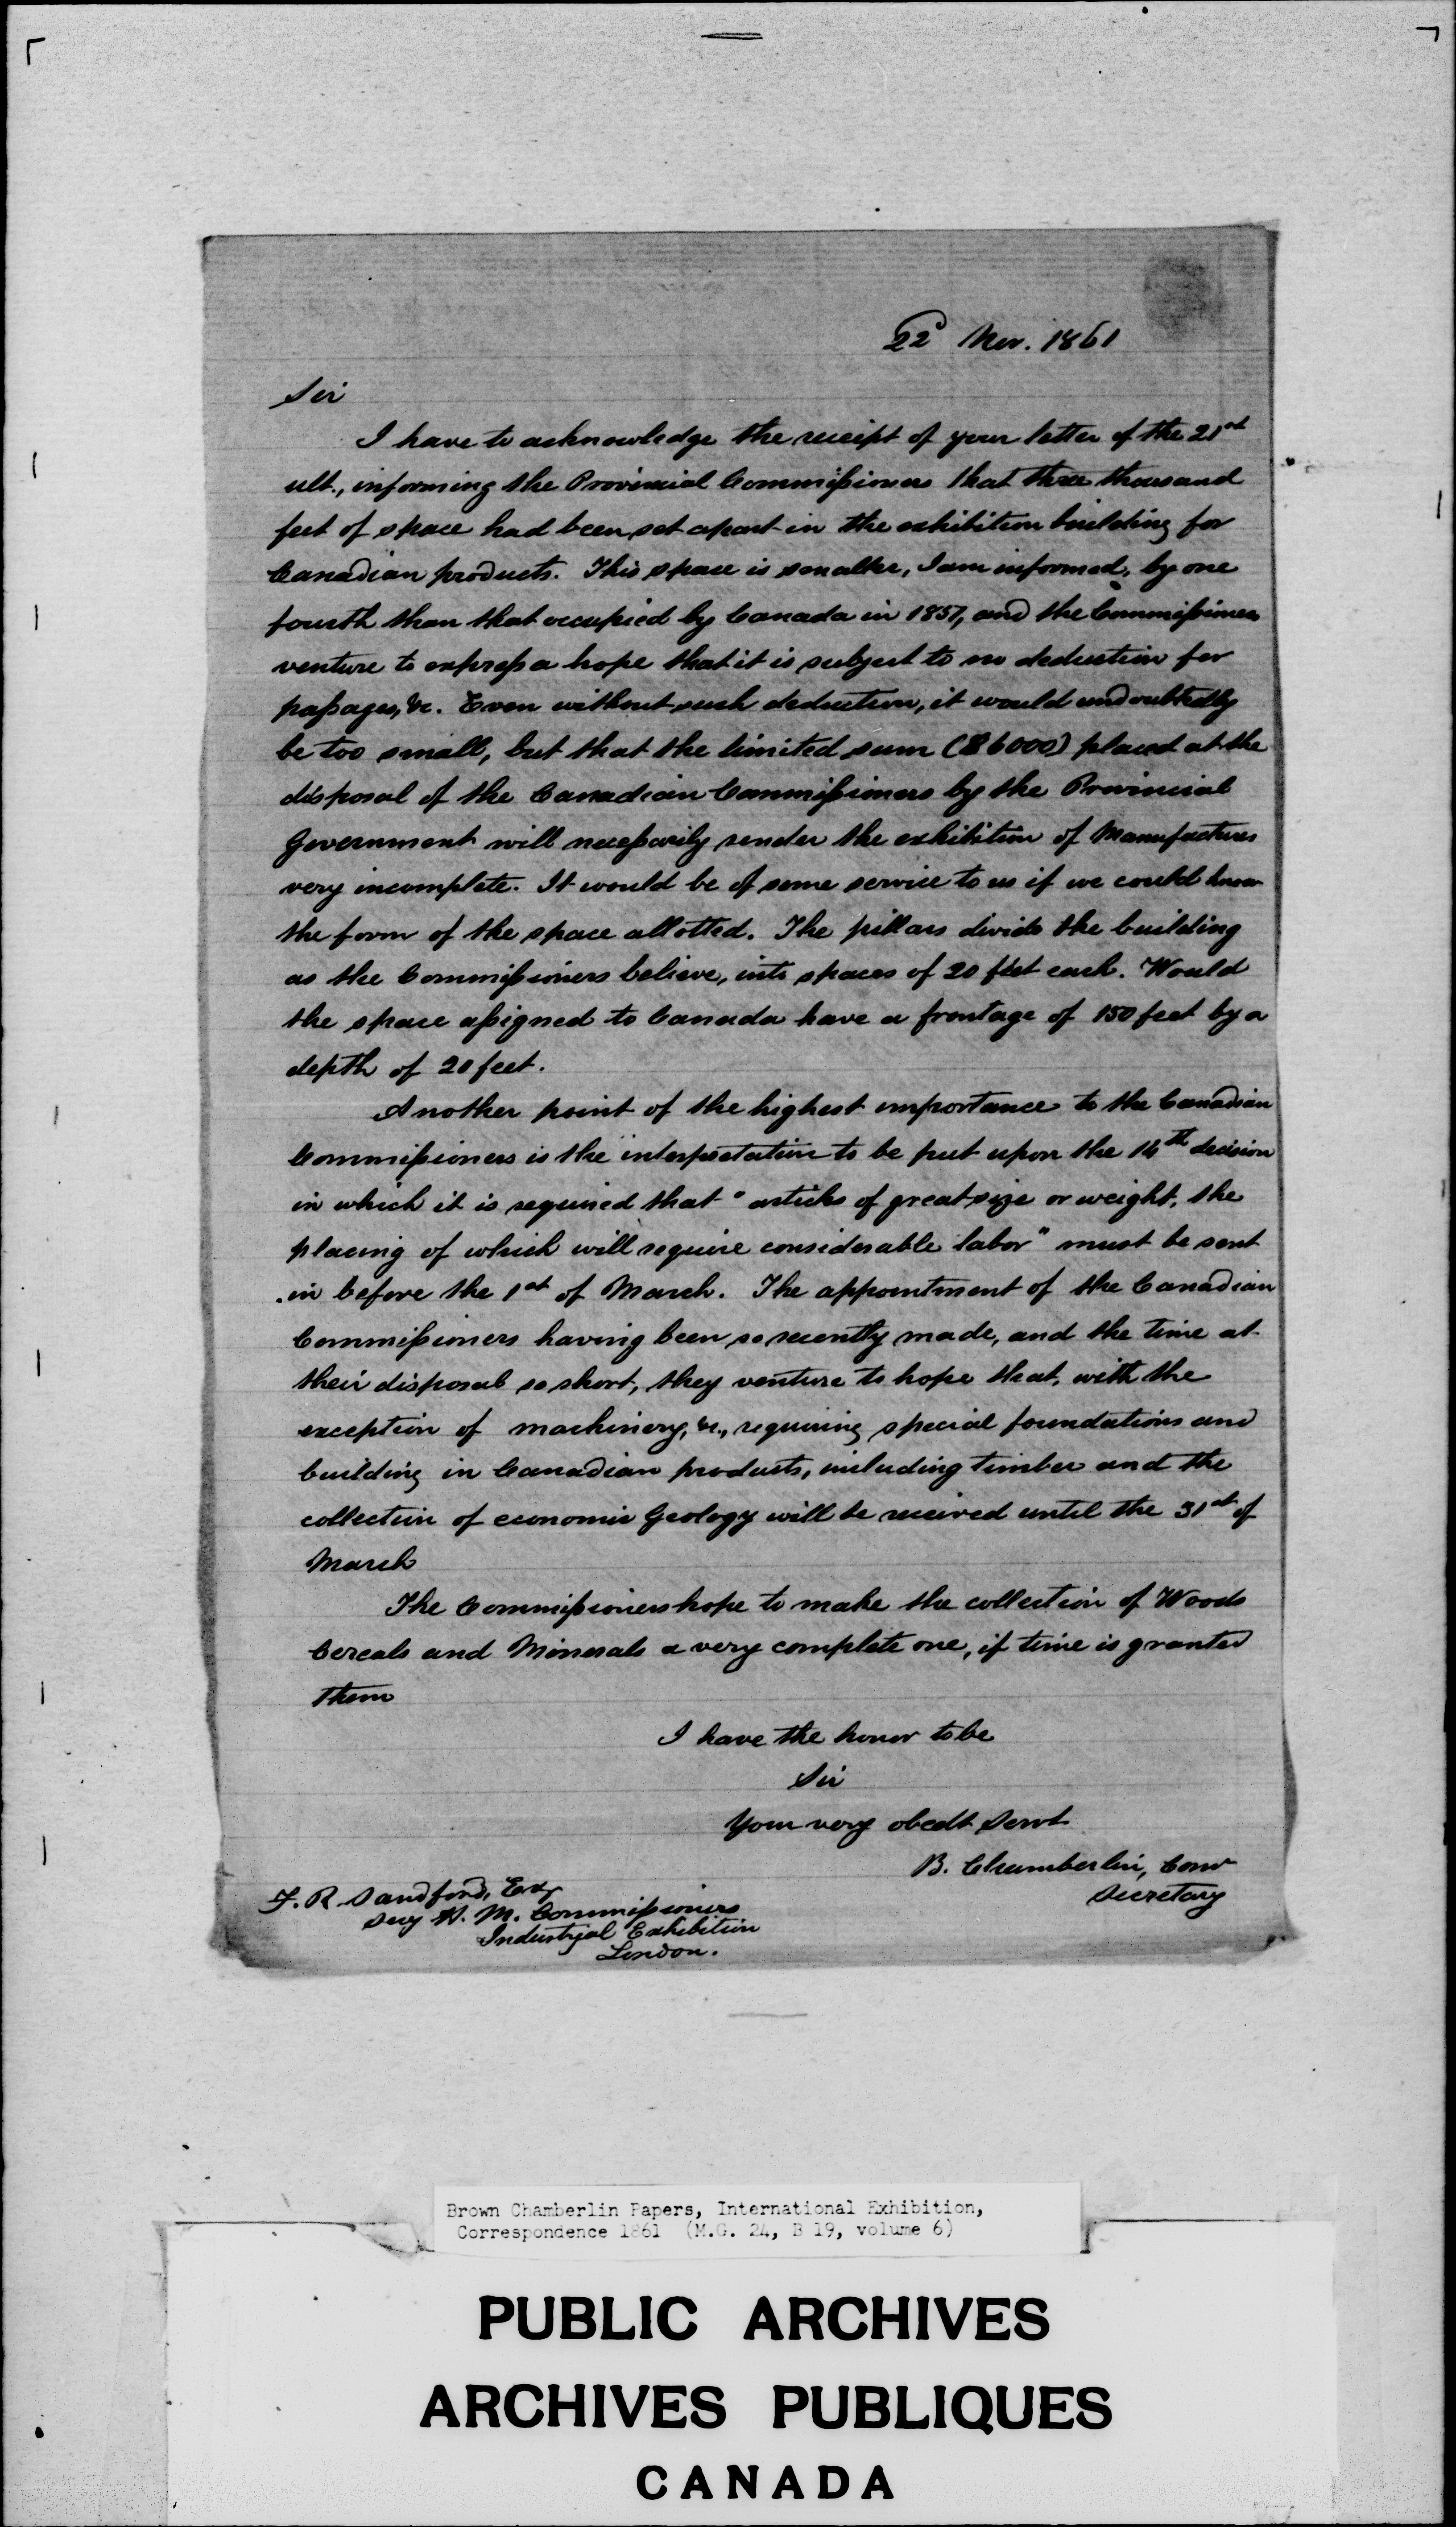 22d Nov. 1861
Sir
I have to acknowledge the receipt of your letter of the 21st
ult., informing the Provincial Commissioners that three thousand
feet of space had been set apart in the exhibition building for
Canadian products. This space is smaller, I am informed, by one
fourth than that occupied by Canada in 1851, and the Commissioners
venture to express a hope that it is subject to no deduction for
passages, &c. Even without such deduction, it would undoubtedly
be too small, but that the limited sum ($6000) placed at the
disposal of the Canadian Commissioners by the Provincial
Government will necessarily render the exhibition of Manufactures
very incomplete. It would be of some service to us if we could know
the form of the space allotted. The pillars divide the building
as the Commissioners believe, into spaces of 20 feet each. Would
the space assigned to Canada have a frontage of 150 feet by a
depth of 20 feet.
Another point of the highest importance to the Canadian
Commissioners is the interpretation to be put upon the 16th decision
in which it is required that "articles of great size or weight, the
placing of which will require considerable labor" must be sent
in before the 1st of March. The appointment of the Canadian
Commissioners having been so recently made, and the time at
their disposal so short, they venture to hope that, with the
exception of machinery, &c., requiring special foundations and
building in Canadian products, including timber and the
collection of economic Geology will be received until the 31st of
March
The Commissioners hope to make the collection of Woods
Cereals and Minerals a very complete one, if time is granted
them
I have the honor to be
Sir
Your very obedt Servt
B. Chamberlin, Comr
Secretary
F. R. Sandford, Esq
Secy H. M. Commissioners
Industrial Exhibition
London.
Brown Chamberlin Papers, International Exhibition,
Correspondence 1861 (M.G. 24, B 19, volume 6)
PUBLIC ARCHIVES
ARCHIVES PUBLIQUES
CANADA